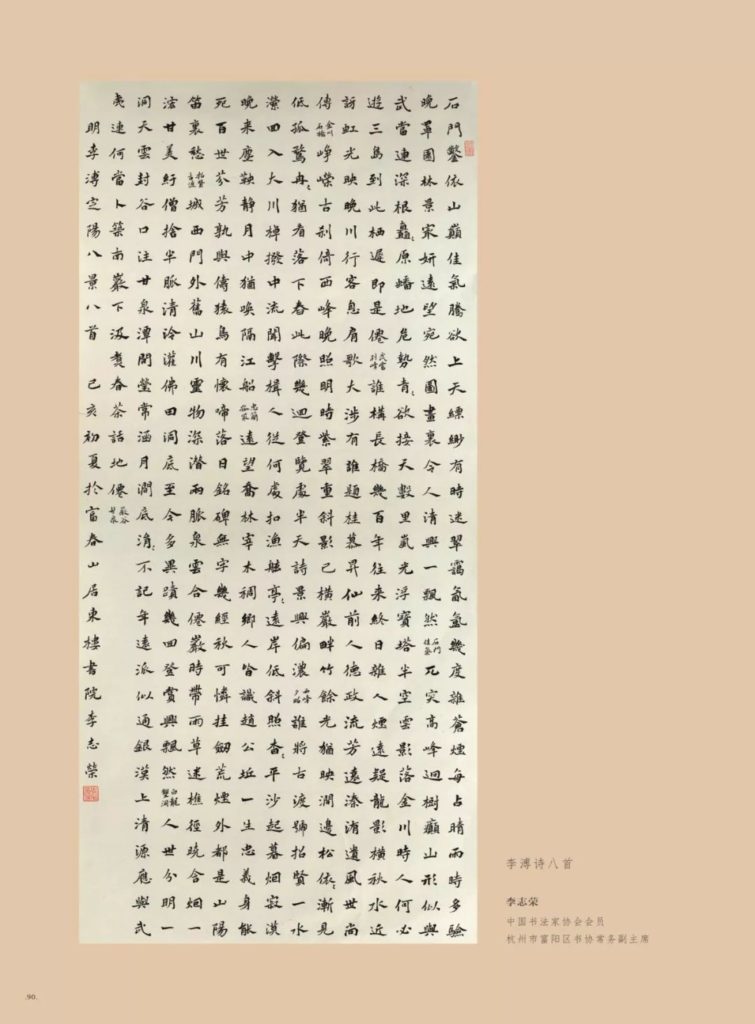 石門鑿〻依山巔佳氣騰欲上天縹緲有時迷翠靄氤氳幾度雜蒼煙每占晴雨時多驗
晚罩園林景寂妍遠望宛然圖畫裏令人清興一飄然石門佳氣兀突高峰迴樹巔山形似與
武當連深根矗〻原蟠地危勢青〻欲接天數里嵐光浮寶塔半空雲影落金川時人何必
遊三島到此栖遲即是僊武當列峰誰構長橋幾百年往來終日雜人煙遠疑龍影橫秋水近
訪虹光映晚川行客息肩歌大涉有誰題柱慕昇仙前人德政流芳遠溱洧遺風世尚
傳金川石橋崢嶸古刹倚西峰晚照明時紫翠重斜影已橫巖畔竹餘光猶映澗邊松依〻漸見
低孤鶩冉〻猶看落下舂此際幾迴登覽處半天詩景興偏濃西峰夕照誰將古渡號招賢一水
瀠回入大川棹撥中流閒擊楫人從何處扣漁舷亭〻遠岸低斜照杳〻平沙起暮烟寂漠
晚來塵鞅靜月中猶喚隔江船遠望喬林宰木稠鄉人皆識趙公丘一生忠義身能
死百世芬芳孰與儔猿鳥有懷啼落日銘碑無字幾經秋可憐挂劒荒煙外都是山陽
笛裏愁城西門外舊山川靈物深潛兩脈泉雲合僊巖時帶雨草迷樵徑晓含烟一
泓甘美紆僧捨半脈清泠灌佛田洞底至今多異蹟幾回登賞興飄然白龍雙洞人世分明一
洞天雲封谷口注甘泉潭間瑩常涵月澗底涓〻不記年遠派似通銀漢上清源應與武
夷連何當卜築南巖下汲煑春茶話地僊巖谷甘泉
明李溥定陽八景八首 己亥初夏於富春山居東樓書院李志榮
李溥诗八首
李志荣
中国书法家协会会员
杭州市富阳区书协常务副主席
.90.